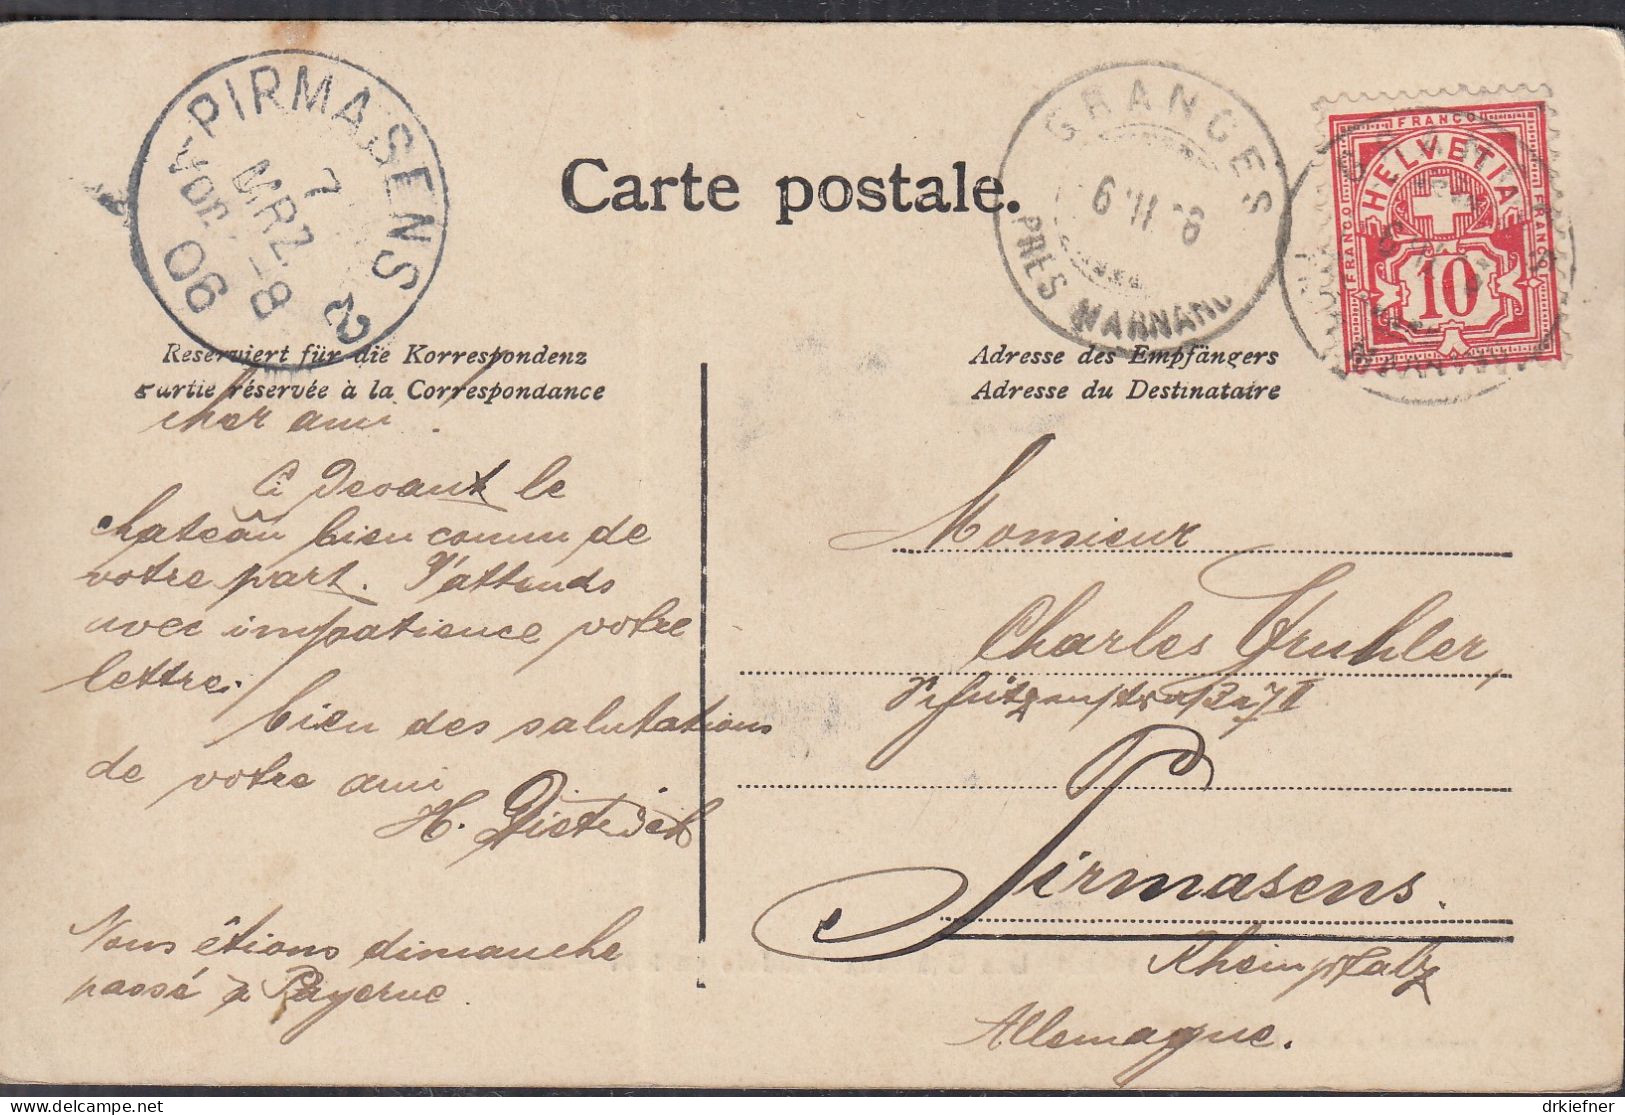 PIRMASENS 2
7 MRZ
Vor. -8
06
Carte postale.
GRANGES
PRÈS MARNAND
FRANCO
HELVETIA
FRANCO
FRANCO
10
Reserviert für die Korrespondenz
Partie réservée à la Correspondance
Adresse des Empfängers
Adresse du Destinataire
cher ami!
Ci devant le
chateâu bien connu de
votre part. J'attends
avec impatience votre
lettre.
bien des salutations
de votre ami
H. Dieterich
Nous êtions dimanche
passé à Payerne.
Monsieur
Charles Gruhler,
Schützenstraße 7 II
Pirmasens.
Rheinpfalz
Allemagne.
drkiefner